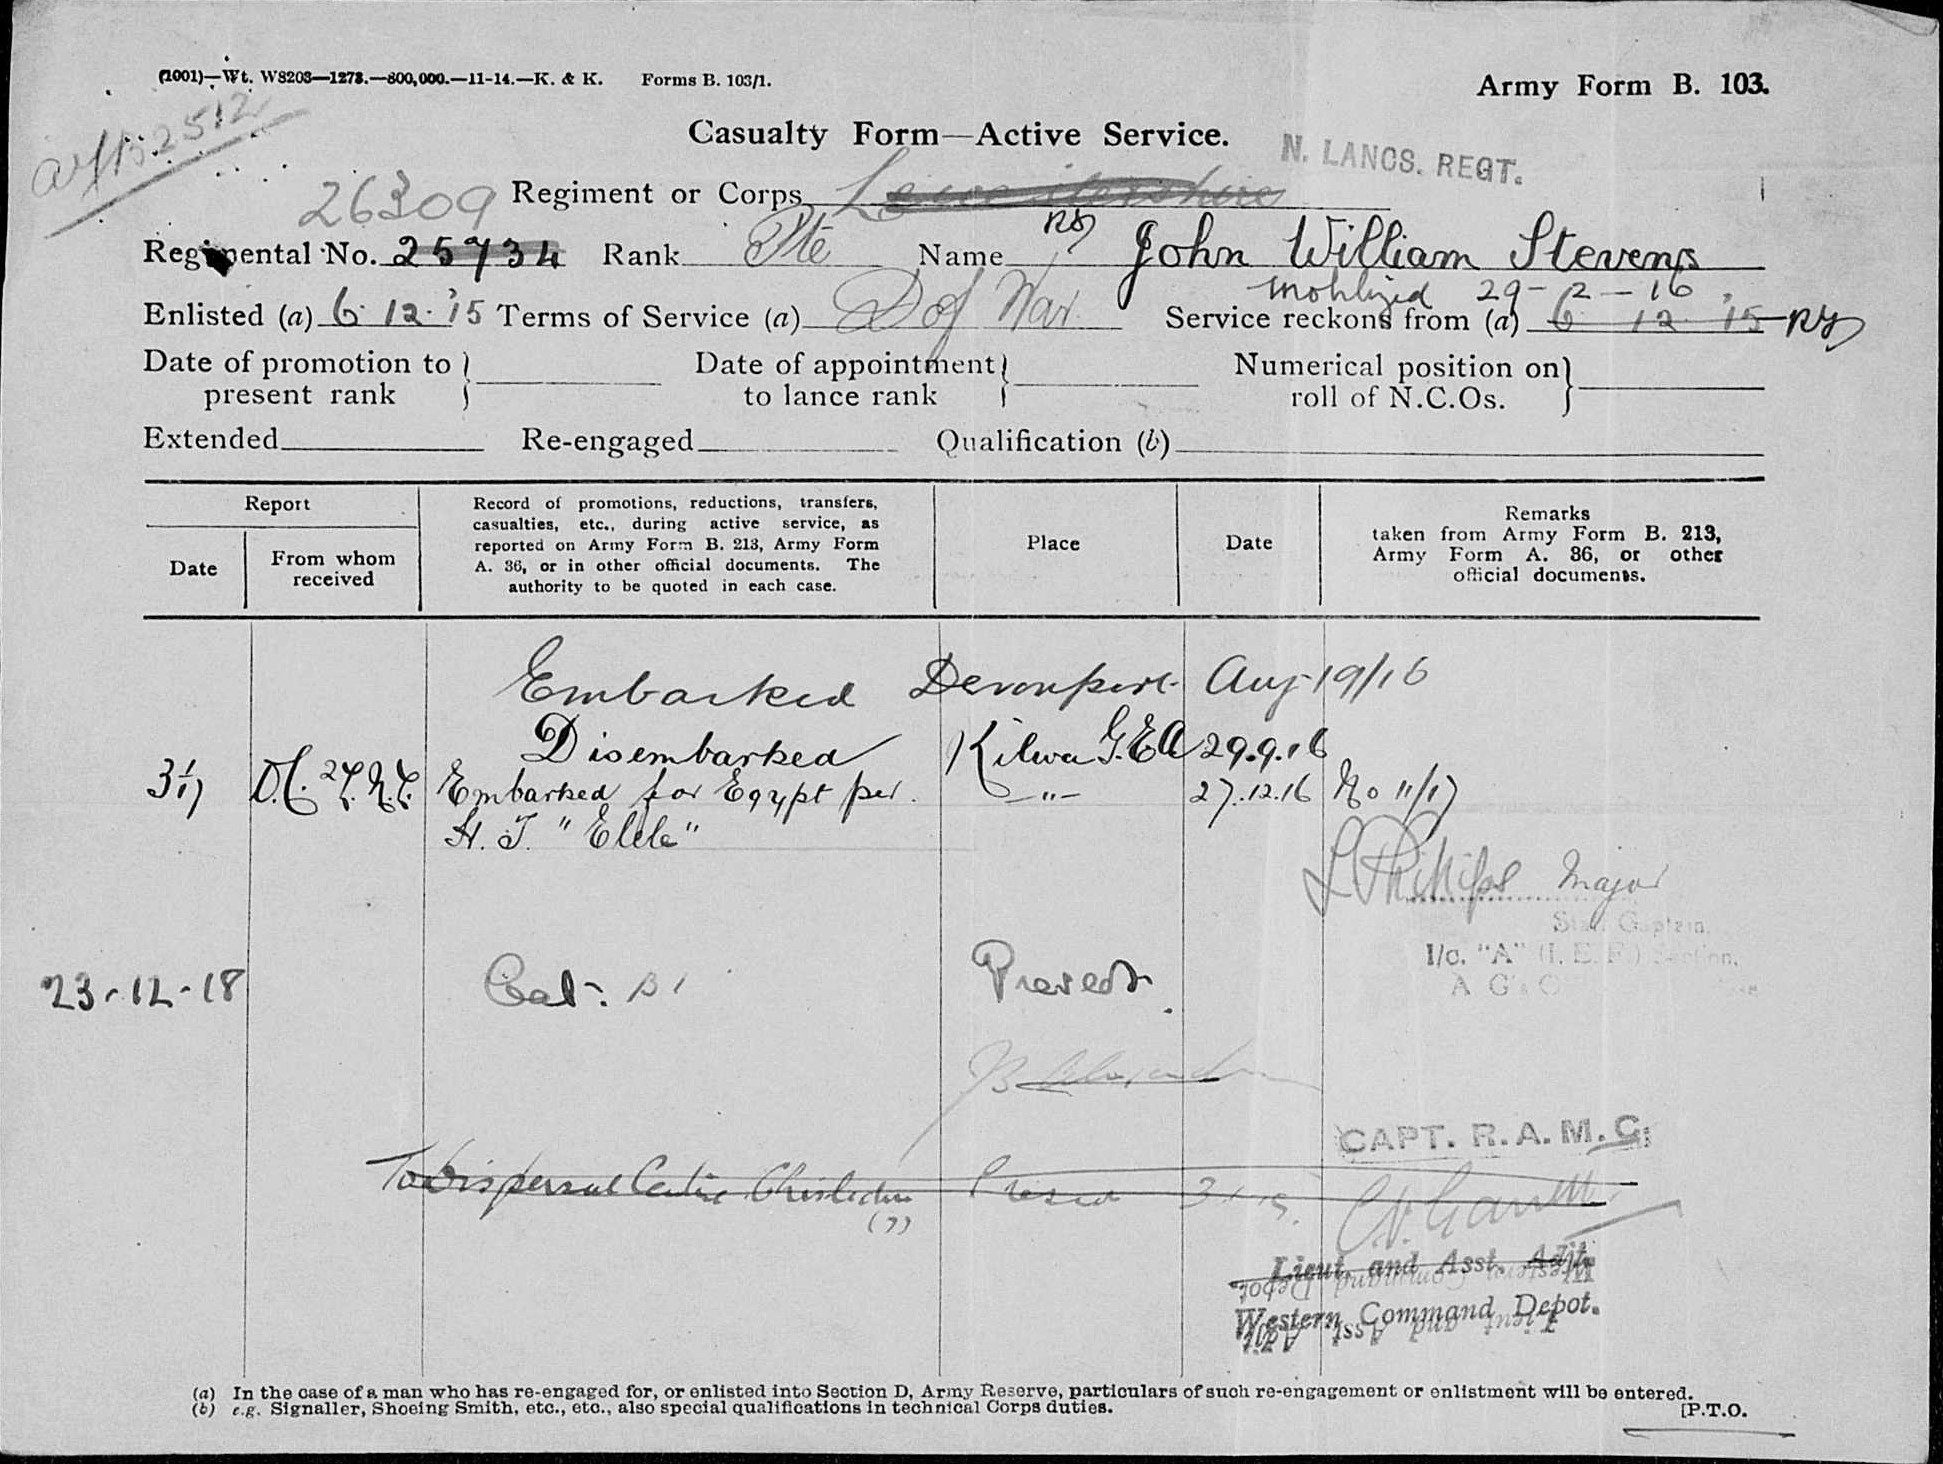 (2001)—Wt. W8208—1273.—800,000.—11-14.—K. & K. Forms B. 103/1.
Army Form B. 103.
Casualty Form—Active Service.
N. LANCS. REGT.
26309 Regiment or Corps Leicestershire
Regimental No. 25734 Rank Pte Name John William Stevens
mohlized 29-2-16
Enlisted (a) 6.12.15 Terms of Service (a) D of War Service reckons from (a) 6 12 15
Date of promotion to present rank } Date of appointment to lance rank } Numerical position on roll of N.C.Os. }
Extended Re-engaged Qualification (b)
Report
Date
From whom received
Record of promotions, reductions, transfers,
casualties, etc., during active service, as
reported on Army Form B. 213, Army Form
A. 36, or in other official documents. The
authority to be quoted in each case.
Place
Date
Remarks
taken from Army Form B. 213,
Army Form A. 36, or other
official documents.
Embarked Devonport Aug 19/16
Disembarked Kilwa G.E.A 29.9.16
Embarked for Egypt per —"— 27.12.16 No 11/17
H. T. "Elele"
L Phillips Major
Staff Captain,
I/c. "A" (I. E. F.) Section,
23-12-18 Cat: B1 Prescot.
CAPT. R.A.M.C.
To Dispersal Centre Chisledon
Lieut. and Asst. Adjt.
Western Command Depot.
Western Command Depot.
Lieut and Asst Adjt
(a) In the case of a man who has re-engaged for, or enlisted into Section D, Army Reserve, particulars of such re-engagement or enlistment will be entered.
(b) e.g. Signaller, Shoeing Smith, etc., etc., also special qualifications in technical Corps duties.
[P.T.O.